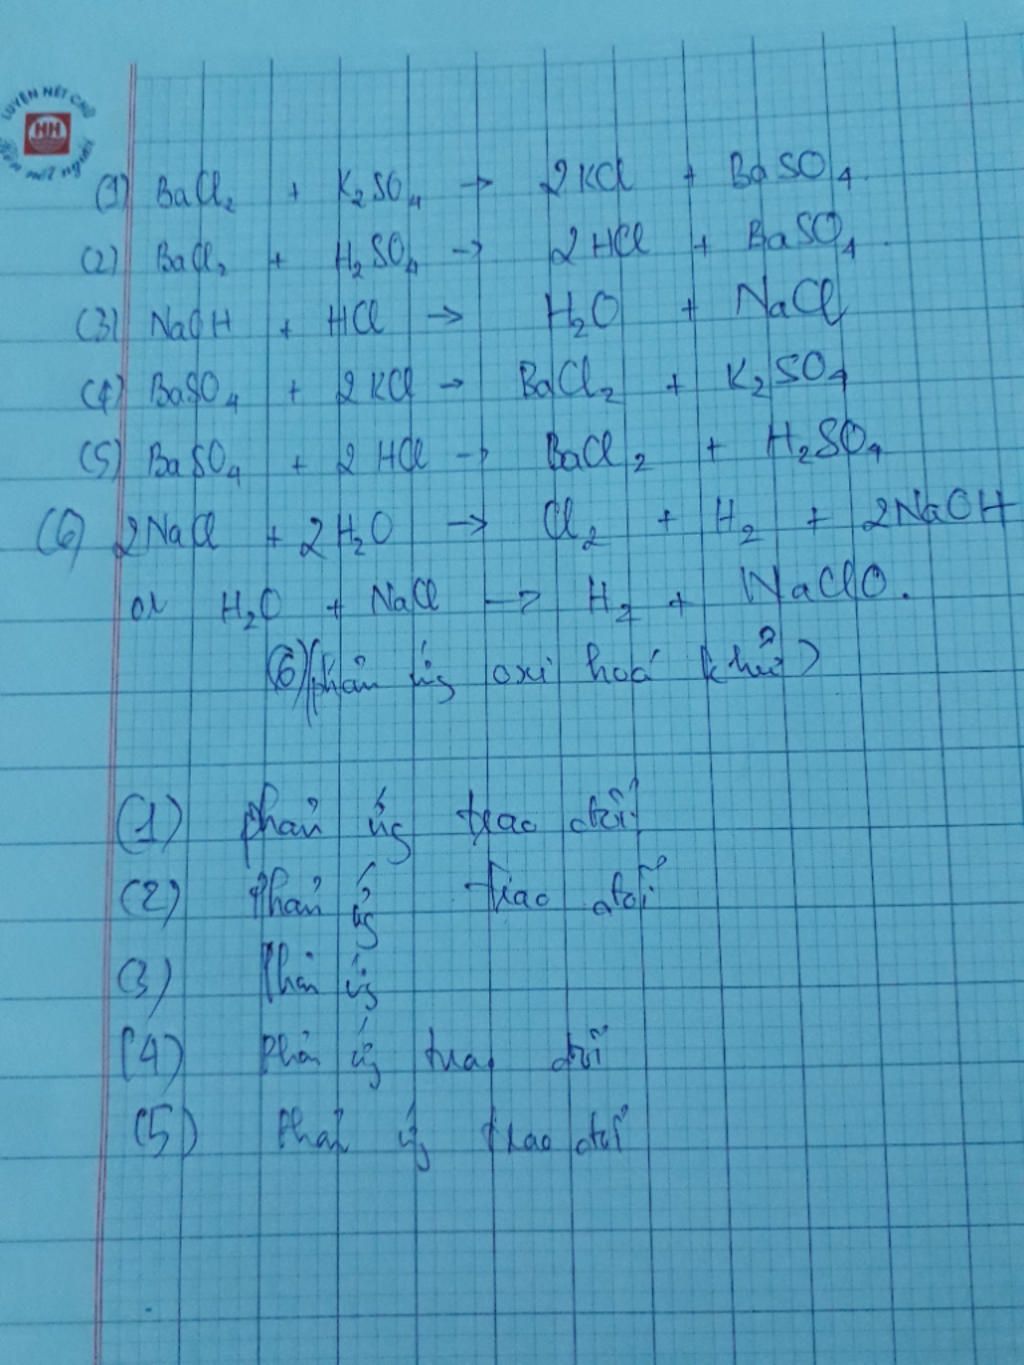 LUYỆN NÉT CHỮ
HH
Rèn nết người
(1) BaCl₂ + K₂SO₄ → 2KCl + BaSO₄.
(2) BaCl₂ + H₂SO₄ → 2HCl + BaSO₄.
(3) NaOH + HCl → H₂O + NaCl
(4) BaSO₄ + 2KCl → BaCl₂ + K₂SO₄
(5) BaSO₄ + 2HCl → BaCl₂ + H₂SO₄
(6) 2NaCl + 2H₂O → Cl₂ + H₂ + 2NaOH
or H₂O + NaCl → H₂ + NaClO.
(6) (phản ứg oxi hoá khử)
(1) phản ứg trao đổi
(2) Phản ứg trao đổi
(3) Phản ứg
(4) Phản ứg trao đổi
(5) Phản ứg trao đổi